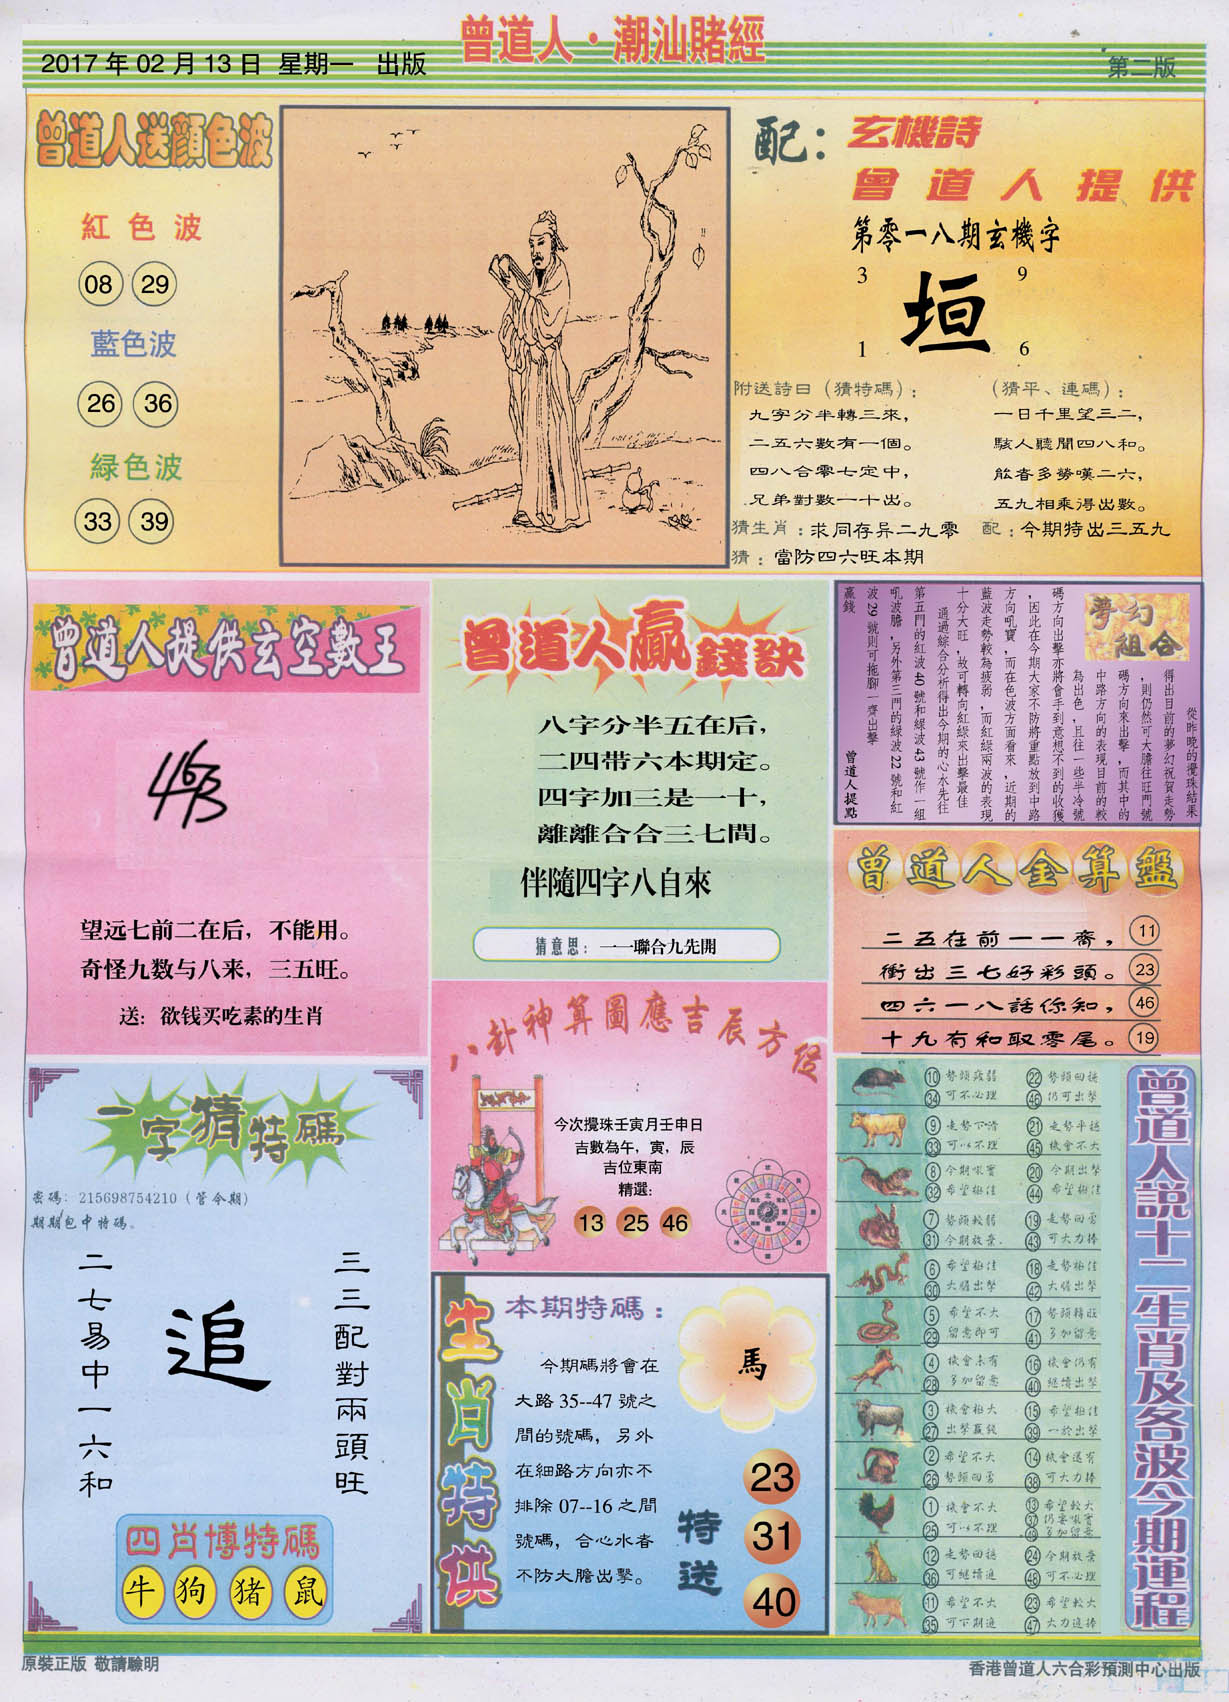 曾道人·潮汕賭經
2017年02月13日 星期一 出版
第二版
曾道人送顏色波
紅色波
08 29
藍色波
26 36
緑色波
33 39
配：
玄機詩
曾道人提供
第零一八期玄機字
3 9
垣
1 6
附送詩曰（猜特碼）：
九字分半轉三來，
二五六數有一個。
四八合零七定中，
兄弟對數一十出。
（猜平、連碼）：
一日千里望三二，
駭人聽聞四八和。
能者多勞嘆二六，
五九相乘得出數。
猜生肖：求同存异二九零
配：今期特出三五九
猜：當防四六旺本期
曾道人提供玄空數王
463
望远七前二在后，不能用。
奇怪九数与八来，三五旺。
送：欲钱买吃素的生肖
曾道人贏錢訣
八字分半五在后，
二四带六本期定。
四字加三是一十，
離離合合三七間。
伴隨四字八自來
猜意思：一一聯合九先開
夢幻組合
從昨晚的攪珠結果
得出目前的夢幻祝賀走勢
，則仍然可大膽往旺門號
碼方向來出擊，而其中的
中路方向的表現目前的較
為出色，且往一些半冷號
碼方向出擊亦將會手到意想不到的收獲
，因此在今期大家不防將重點放到中路
方向吼寶，而在色波方面看來，近期的
藍波走勢較為疲弱，而紅綠兩波的表現
十分大旺，故可轉向紅綠來出擊最佳
通過綜合分析得出今期的心水先往
第五門的紅波40號和緑波43號作一組
吼波膽，另外第三門的緑波22號和紅
波29號則可拖腳一齊出擊
贏錢
曾道人提點
曾道人金算盤
二五在前一一齋， 11
衝出三七好彩頭。 23
四六一八話你知， 46
十九有和取零尾。 19
八卦神算圖應吉辰方位
今次攪珠壬寅月壬申日
吉數為午，寅，辰
吉位東南
精選：
13 25 46
一字猜特碼
密碼：215698754210（管今期）
期期包中特碼。
二七易中一六和
追
三三配對兩頭旺
四肖博特碼
牛 狗 猪 鼠
生肖特供
本期特碼：
今期碼將會在
大路35--47號之
間的號碼，另外
在細路方向亦不
排除07--16之間
號碼，合心水者
不防大膽出擊。
馬
特送
23
31
40
10 34 勢頭疲弱 可不必理 22 46 勢頭回穩 仍可出擊
9 33 走勢下滑 可以不理 21 45 走勢平穩 機會不大
8 32 今期吼寶 希望極佳 20 44 今期出擊 希望極佳
7 31 勢頭較弱 今期放棄. 19 43 走勢回勇 可大力捧
6 30 希望極佳 大膽出擊 18 42 走勢極佳 大膽出擊
5 29 希望不大 留意即可 17 41 勢頭轉旺 多加留意
4 28 機會未有 多加留意 16 40 機會仍有 繼續出擊
3 27 機會極大 出擊贏錢 15 39 希望極佳 一於出擊
2 26 希望不大 勢頭回勇 14 38 機會還有 可大力捧
1 25 機會不大 可以不理 13 37 49 希望較大 仍要吼寶 多加留意
12 36 走勢回穩 可繼續進 24 48 今期放棄 可不必理
11 35 希望不大 可下期進 23 47 希望較大 大力進捧
曾道人説十二生肖及各波今期運程
原裝正版 敬請驗明
香港曾道人六合彩預測中心出版